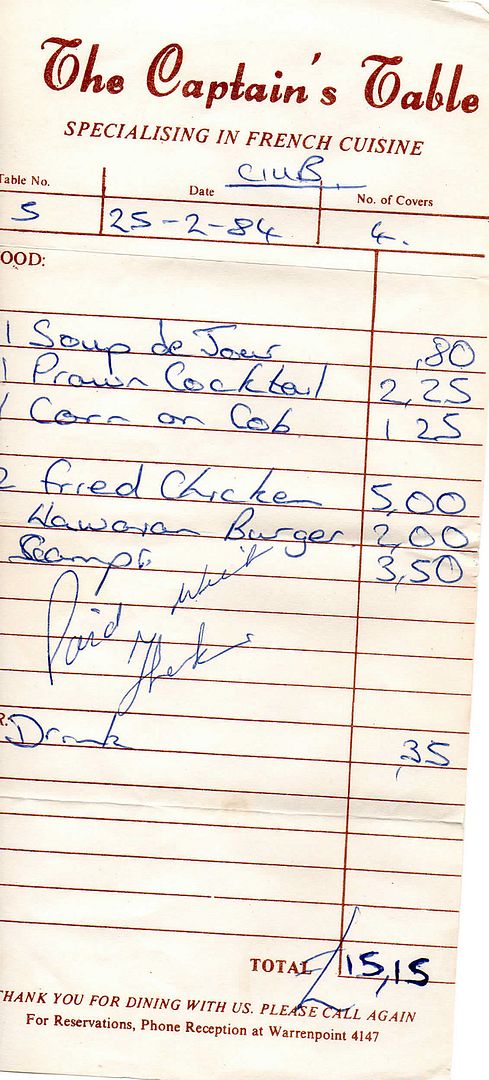 The Captain's Table
SPECIALISING IN FRENCH CUISINE
CLUB
Table No. Date No. of Covers
5 25-2-84 4.
OOD:
1 Soup de Jour .80
1 Prawn Cocktail 2,25
1 Corn on Cob 1 25
2 fried Chicken 5,00
Hawaian Burger 2,00
Scampi 3,50
Paid with
Thanks
R: Drink ,35
TOTAL £15,15
THANK YOU FOR DINING WITH US. PLEASE CALL AGAIN
For Reservations, Phone Reception at Warrenpoint 4147